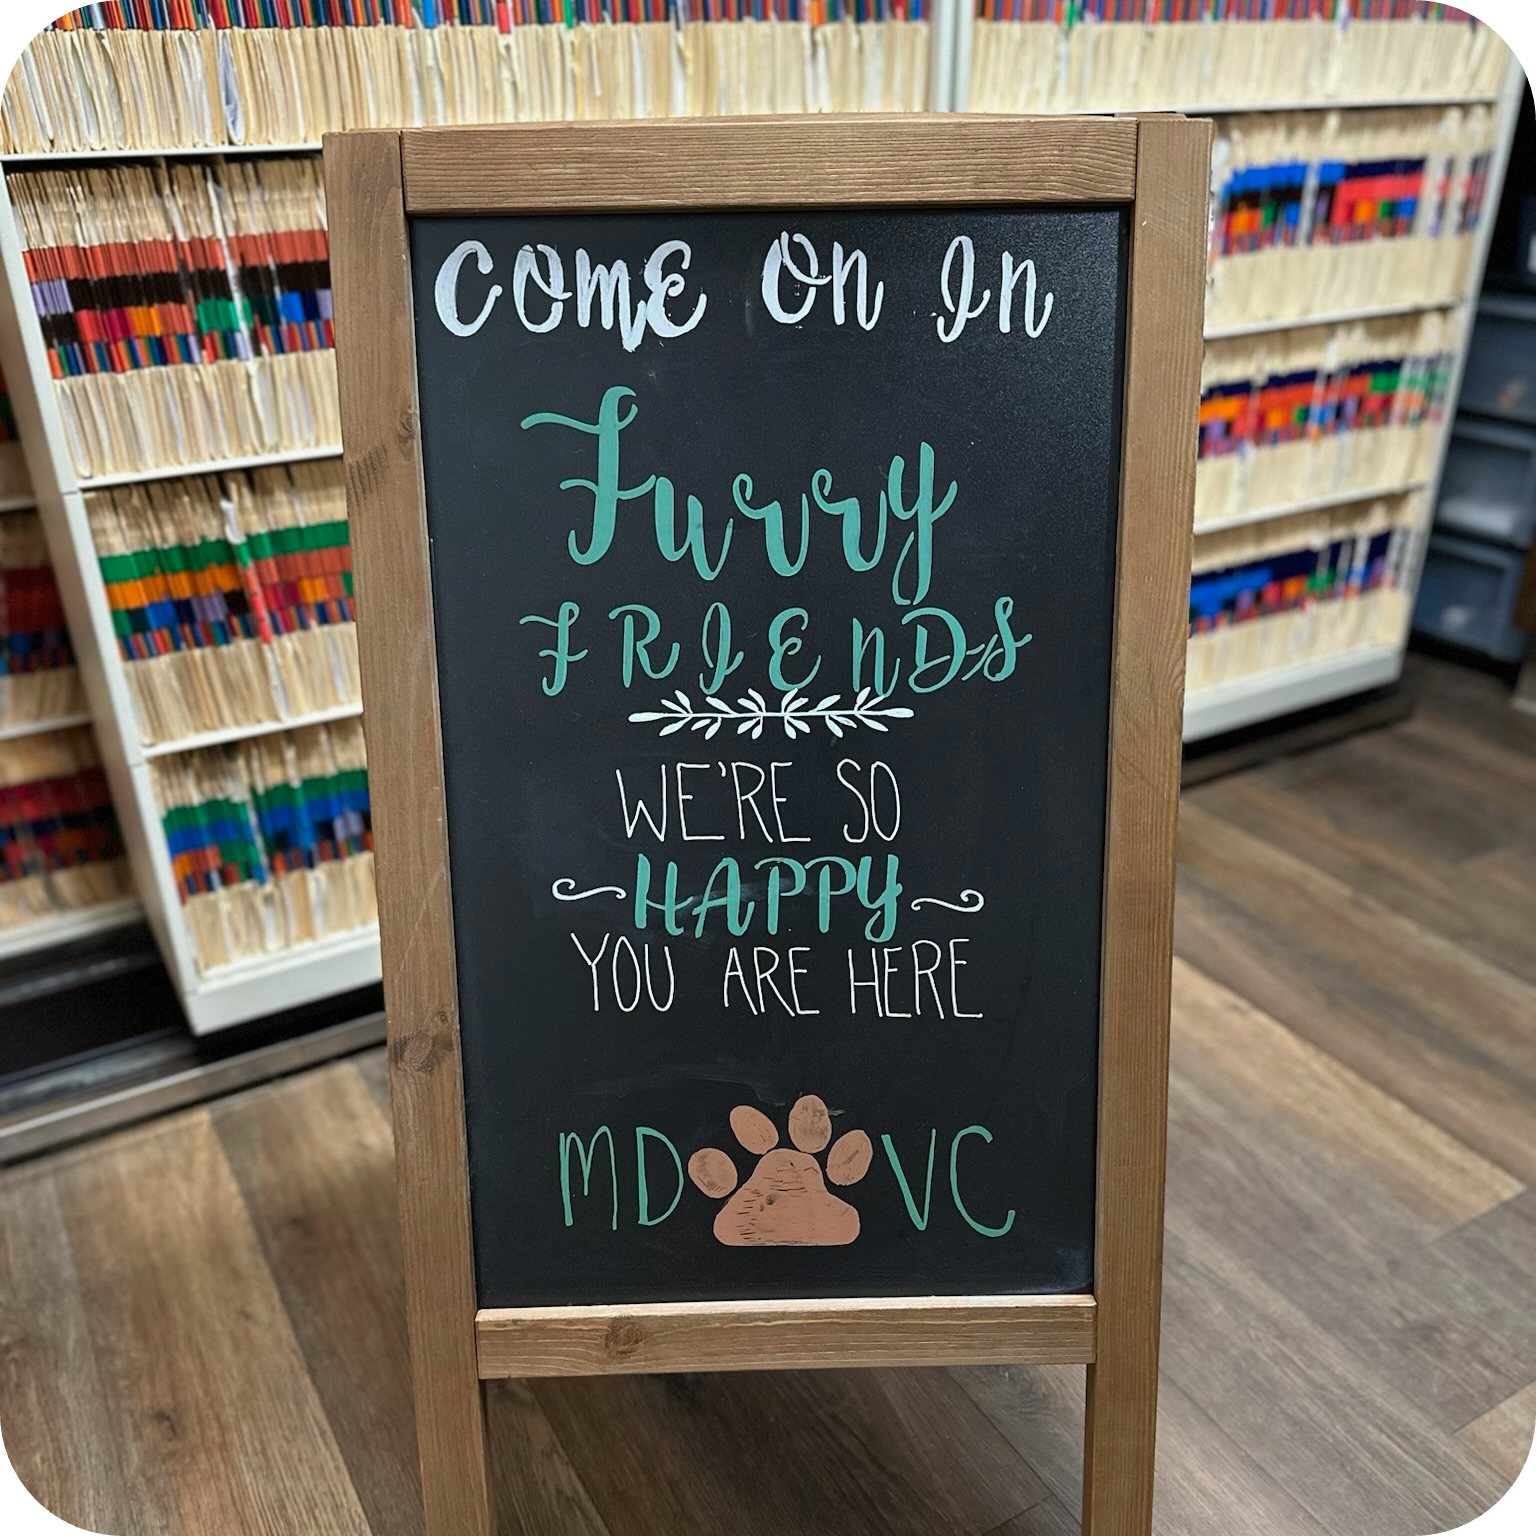 COME ON IN
Furry
FRIENDS
WE'RE SO
HAPPY
YOU ARE HERE
MD VC